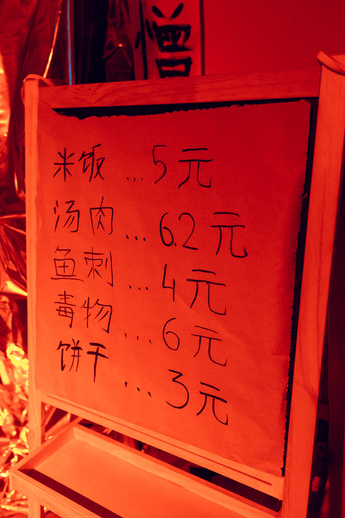 憎
米饭 ... 5元
汤肉 ... 6.2元
鱼刺 ... 4元
毒物 .... 6元
饼干 ... 3元